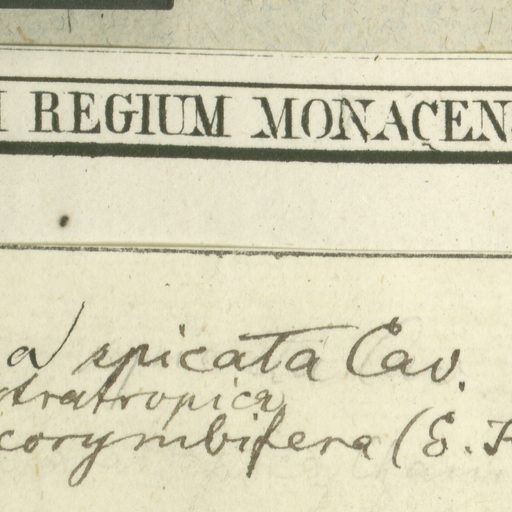 REGIUM MONACEN
a spicata Cav.
stratropica
corymbifera (E.